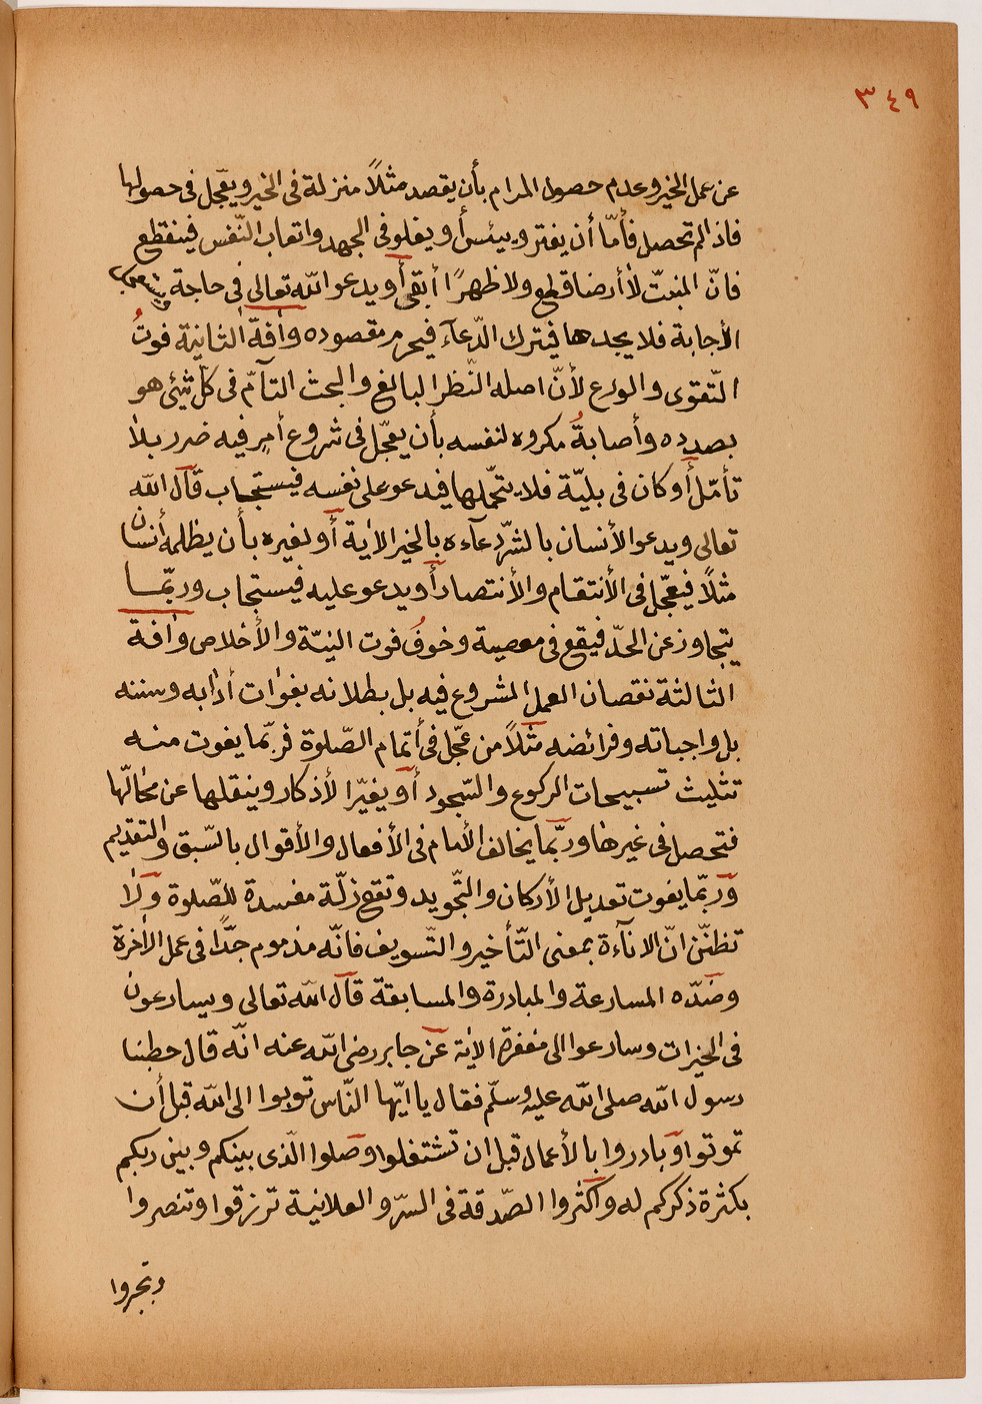 ٣٤٩
عن عمل الخير وعدم حصول المرام بأن يقصد مثلاً منزلة فى الخير ويعّجل فى حصولها
فاذا لم تحصل فأمّا أن يفتر وييئس أو يغلو فى الجهد واتعاب النّفس فينقطع
فانّ المنبتّ لا أرضا قطع ولا ظهرًا أبقى أو يدعو الله تعالى فى حاجة ويستعجل
الأجابة فلا يجدها فيترك الدّعآء فيحرم مقصوده واٰفة الثانية فوتُ
التّقوٰى والورع لأنّ اصله النّظر البالغ والبحث التآمّ فى كلّ شيئ هو
بصدده وأصابةُ مكروه لنفسه بأن يعجّل فى شروع أمرٍ فيه ضرر بلا
تأمّل أو كان فى بليّة فلا يتحّملها فيدعو على نفسه فيستجاب قآل الله
تعالى ويدعو الأنسان بالشرّ دعآءه بالخير الاٰية أو لغيره بأن يظلمه أنسان
مثلًا فيعّجل فى الأنتقام والأنتصار أو يدعو عليه فيستجاب وربّمـا
يتجاوز عن الحدّ فيقع فى معصية وخوفُ فوت النيّة والأخلاص واٰفة
الثالثة نقصان العمل المشروع فيه بل بطلانه بفوات أدٰابه وسننه
بل واجباته وفرائضه مثلاً من عّجل فى أتمام الصّلوة فربّما يفوت منه
تثليث تسبيحات الركوع والسّجود أو يغيّر الأذكار وينقلها عن محٰالّها
فتحصل فى غيرها وربّما يخالف الأمام فى الأفعال والأقوال بالسّبق والتقديم
وربّما يفوت تعديل الأركان والتّجويد وتقع زلّة مفسدة للصّلوة ولا
تظنّن انّ الاناءة بمعنى التّأخير والتّسويف فانّه مذموم جدًّا فى عمل الاٰخرة
وضدّه المسارعة والمبادرة والمسابقة قآل الله تعالى ويسارعون
فى الخيرات وسارعوا الى مغفرة الاٰية عن جابر رضى الله عنه انّه قال خطبنا
رسول الله صلى الله عليه وسلّم فقال يا ايّها النّاس توبوا الى الله قبل أن
تموتوا وبادروا بالأعمال قبل ان تشتغلوا وصلوا الّذى بينكم وبين ربكم
بكثرة ذكركم له وأكثروا الصّدقة فى السرّ والعلانية ترزقوا وتنصروا
وتجبروا